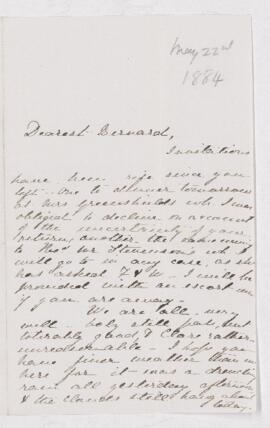 May 22nd
1884
Dearest Bernard,
Invitations
have been rife since you
left. One to dinner tomorrow
at Mrs Greenshields wh. I was
obliged to decline on account
of the uncertainty of your
return, another the same
to Thea Mrs wh. I
will go to in any case, as she
has asked F & W. I will be
provided with an escort even
if you are away.
We are all very
well. still pale, but
tolerably good, & Clare rather
unreasonable. I hope you
have finer weather than we
here for it was a drenching
rain all yesterday afternoon
& the clouds still hang about
today.